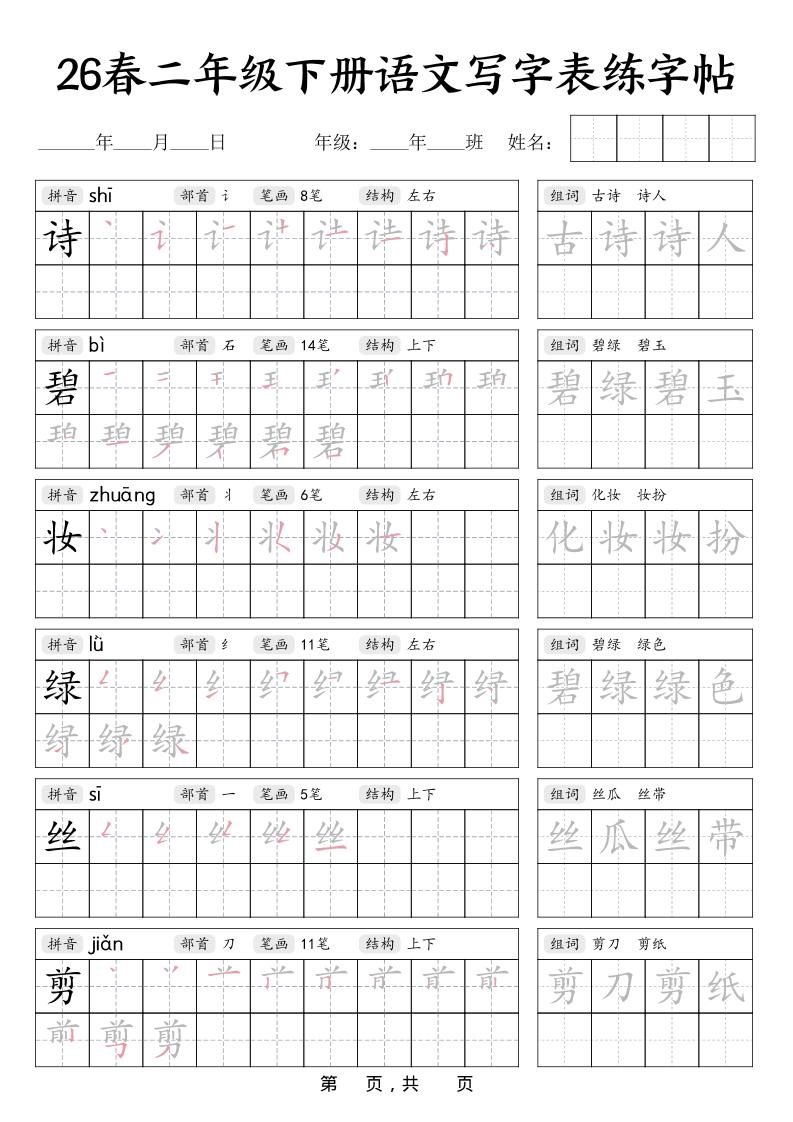 26春二年级下册语文写字表练字帖
______年____月____日 年级：____年____班 姓名：
拼音 shī 部首 讠 笔画 8笔 结构 左右 组词 古诗 诗人
诗 古诗诗人
拼音 bì 部首 石 笔画 14笔 结构 上下 组词 碧绿 碧玉
碧 碧绿碧玉
拼音 zhuāng 部首 丬 笔画 6笔 结构 左右 组词 化妆 妆扮
妆 化妆妆扮
拼音 lǜ 部首 纟 笔画 11笔 结构 左右 组词 碧绿 绿色
绿 碧绿绿色
拼音 sī 部首 一 笔画 5笔 结构 上下 组词 丝瓜 丝带
丝 丝瓜丝带
拼音 jiǎn 部首 刀 笔画 11笔 结构 上下 组词 剪刀 剪纸
剪 剪刀剪纸
第 页，共 页